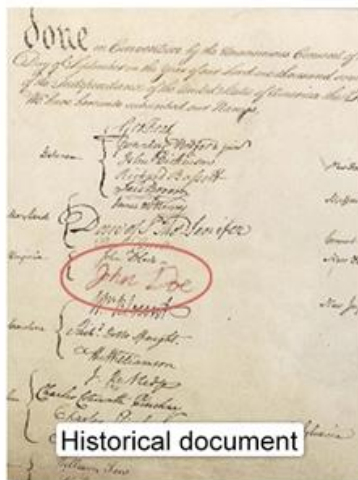 done in Convention by the Unanimous Consent of
Day of September in the Year of our Lord one thousand
of the Independance of the United States of America
We have hereunto subscribed our Names,
Geo: Read
Gunning Bedford jun
John Dickinson
Richard Bassett
Jaco: Broom
James McHenry
Dan of St Thos Jenifer
John Blair
John Doe
Wm Blount
Richd Dobbs Spaight
Hu Williamson
J. Rutledge
Charles Cotesworth Pinckney
Charles Pinckney
Historical document
William Few